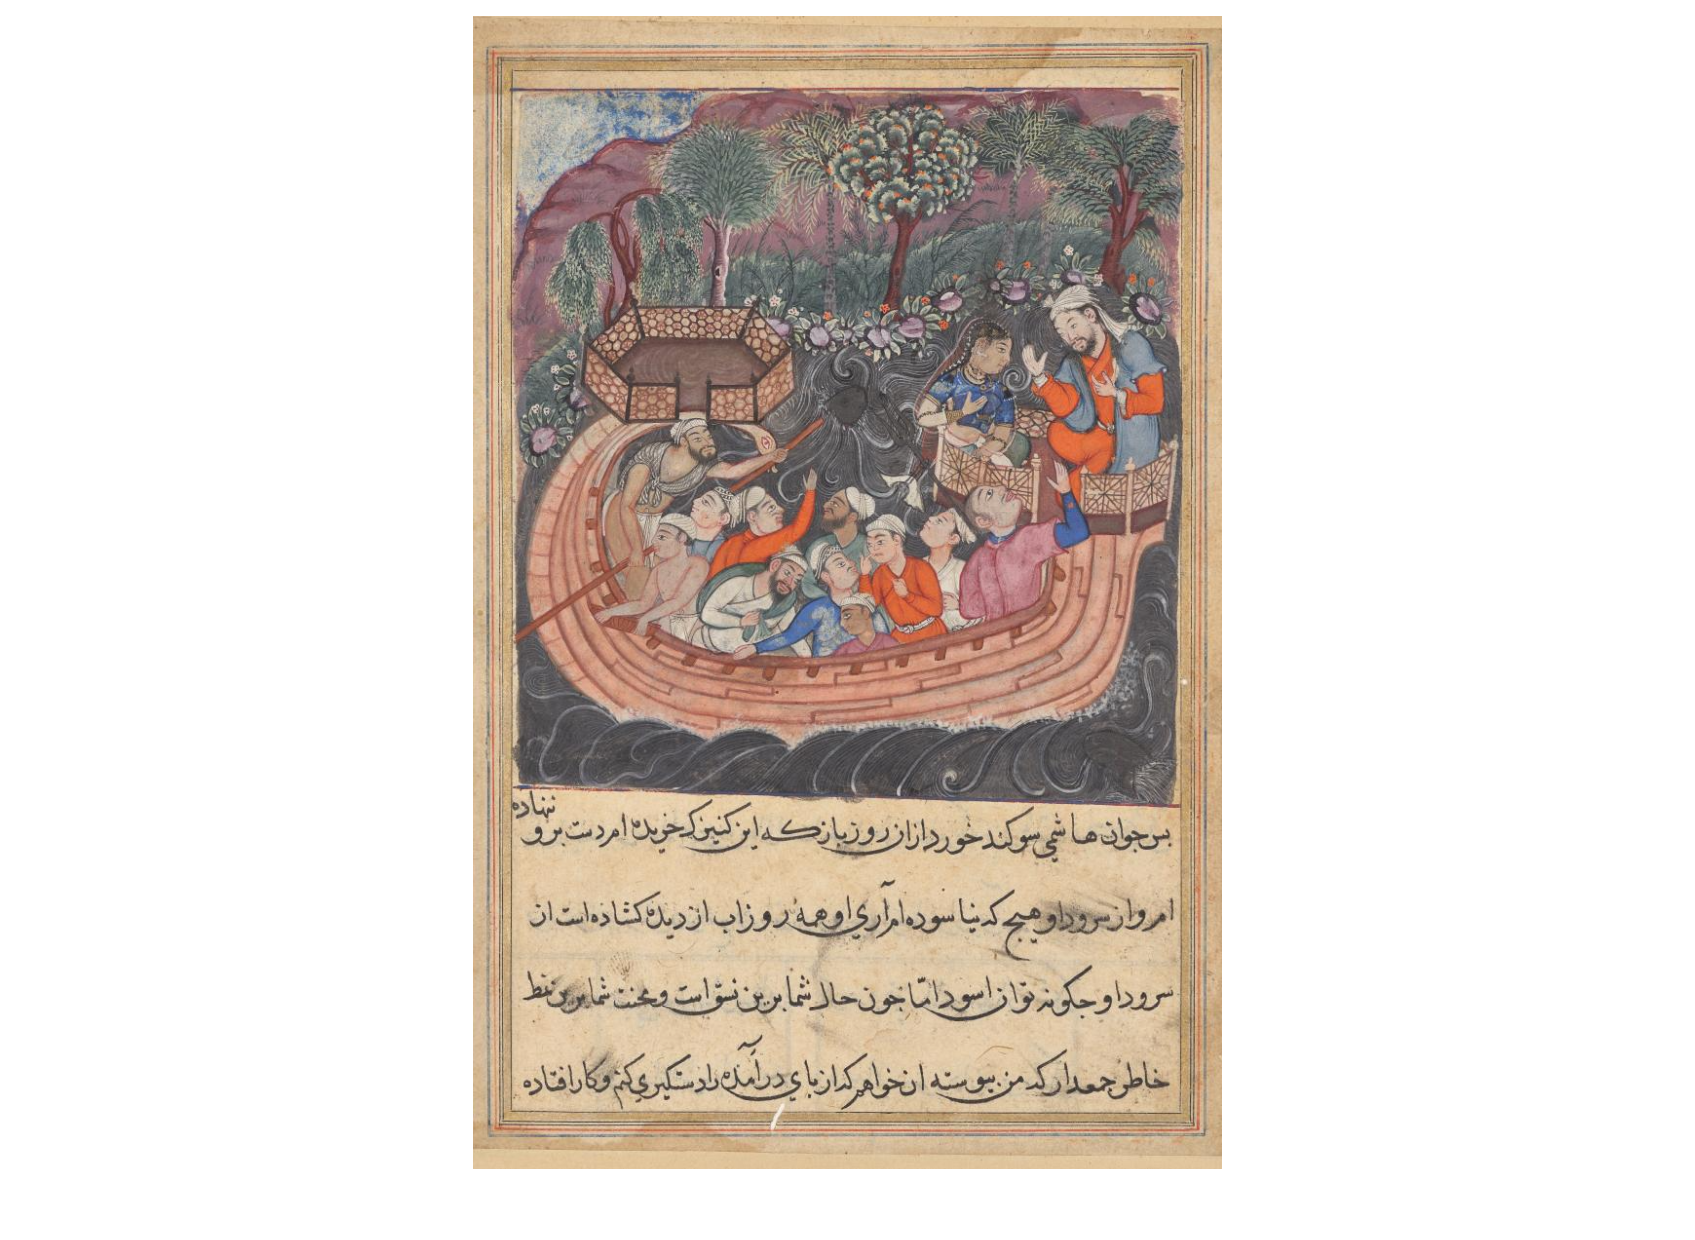 ننهاده
بس جوان هاشمي سوکند خورد از ان روز باز که این کنیزک خریده ام دست برو
ام و از سرود او هیچ که نیاسوده ام آري او همه روز اب از دیده کشاده است از
سرود او جکونه توان اسود امّا جون حال شما برین نسق است و محنت شما برین نمط
خاطر جمع دار که من بیوسته ان خواهم که از باي در آمده را دستکیري کنم و کار افتاده